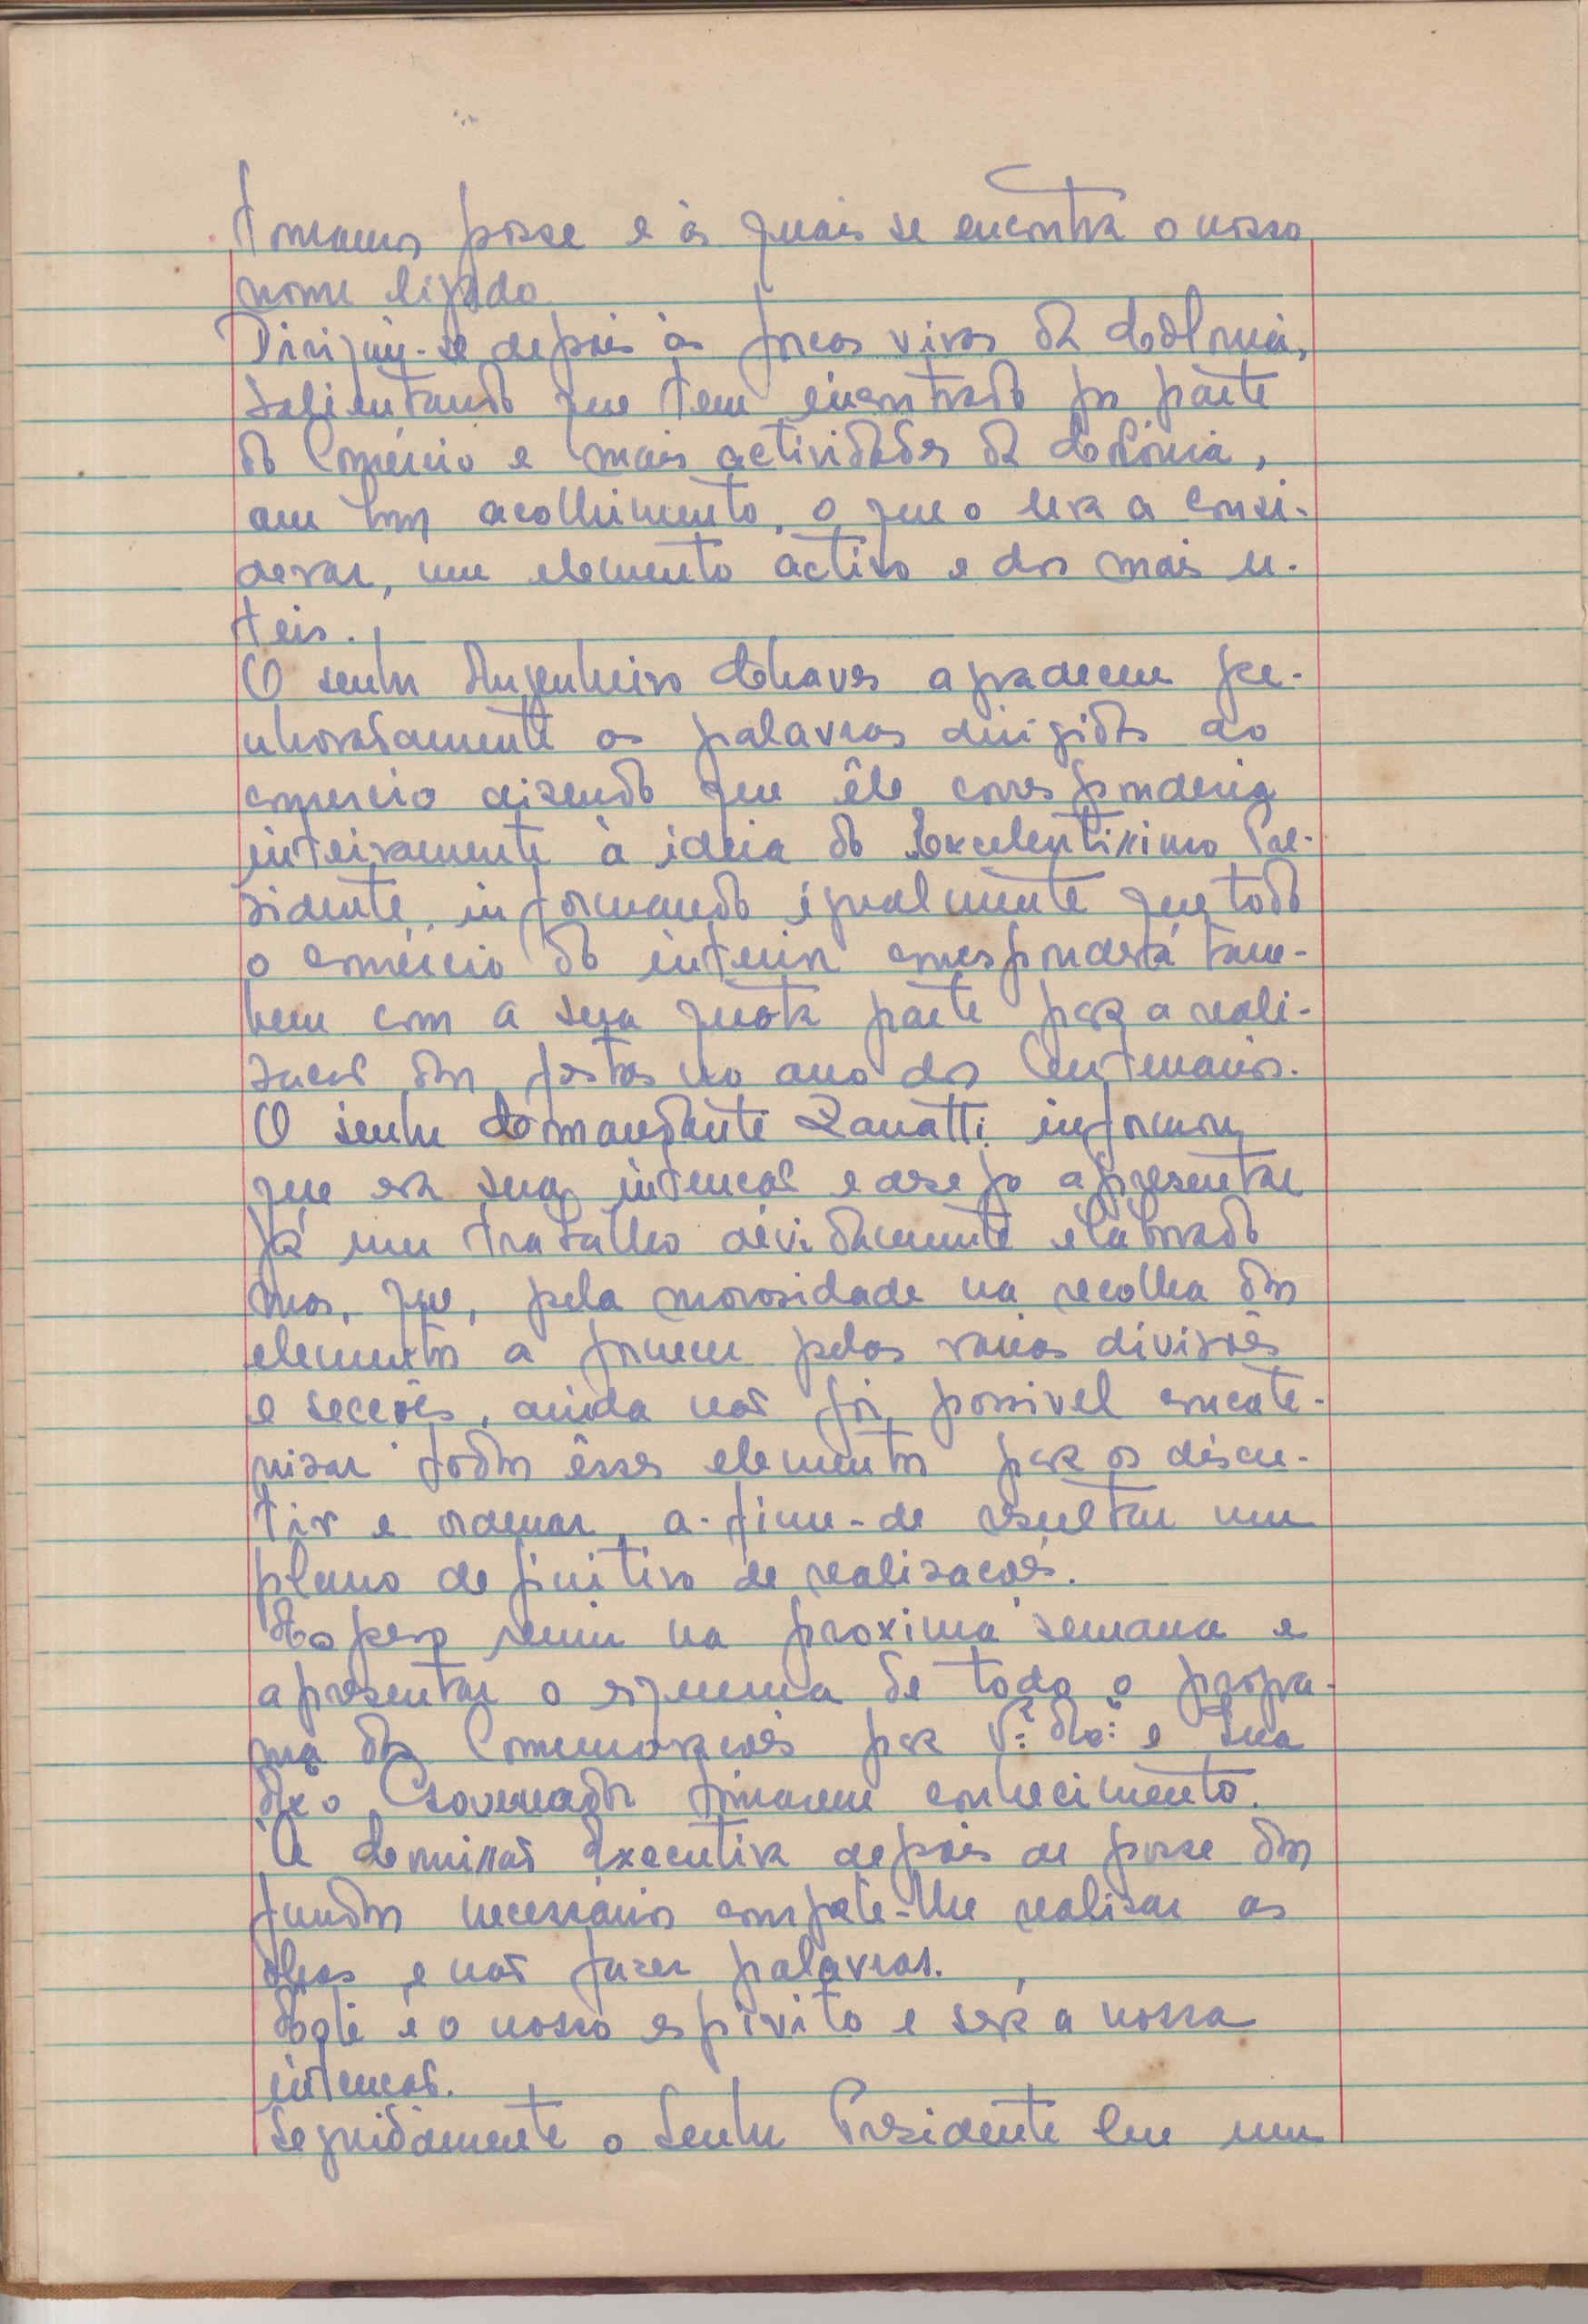 tomamos posse e às quais se encontra o nosso
nome ligado
Dirigiu-se depois às forcas vivas da Colonia,
salientando que tem encontrado por parte
do Comércio e mais actividades da Colónia,
um bom acolhimento, o que o leva a consi-
derar, um elemento activo e dos mais u-
teis.
O senhor Engenheiro Chaves agradeceu pe-
nhoradamente as palavras dirigidas ao
comercio dizendo que êle corresponderia
inteiramente à ideia do Excelentissimo Pre-
sidente, informando igualmente que todo
o comércio do interior corresponderá tam-
bem com a sua quota parte para a reali-
zacaõ das festas no ano dos Centenarios.
O senhor Comandante Zanatti informou
que era sua intencaõ e desejo apresentar
já um trabalho devidamente elaborado
mas, que, pela morosidade na recolha dos
elementos a fornecer pelas varias divisoẽs
e seccoẽs, ainda naõ foi possivel
todos êsses elementos para os discu-
tir e ordenar, a-fim-de resultar um
plano definitivo de realisacoẽs.
Espera reunir na proxima semana e
apresentar o esquema de todo o progra-
ma das Comemoracoẽs para V.ª Ex.ª e Sua
Ex.ª o Governador tomarem conhecimento.
A Comissaõ Executiva depois de posse dos
fundos necessários compete-lhe realisar as
obras e naõ fazer palavras.
Este é o nosso espirito e será a nossa
intencaõ.
Seguidamente o Senhor Presidente leu um